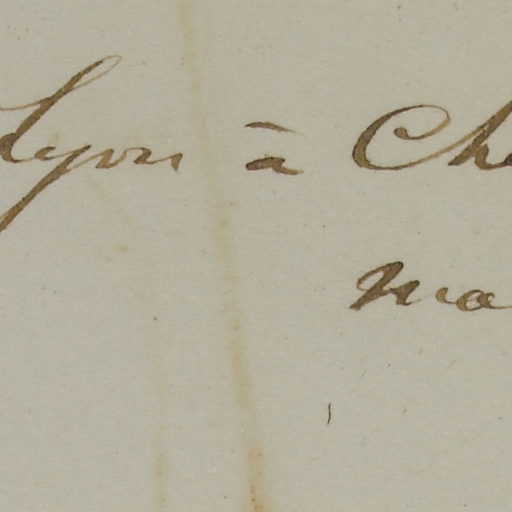 Lyon à Cha
ma